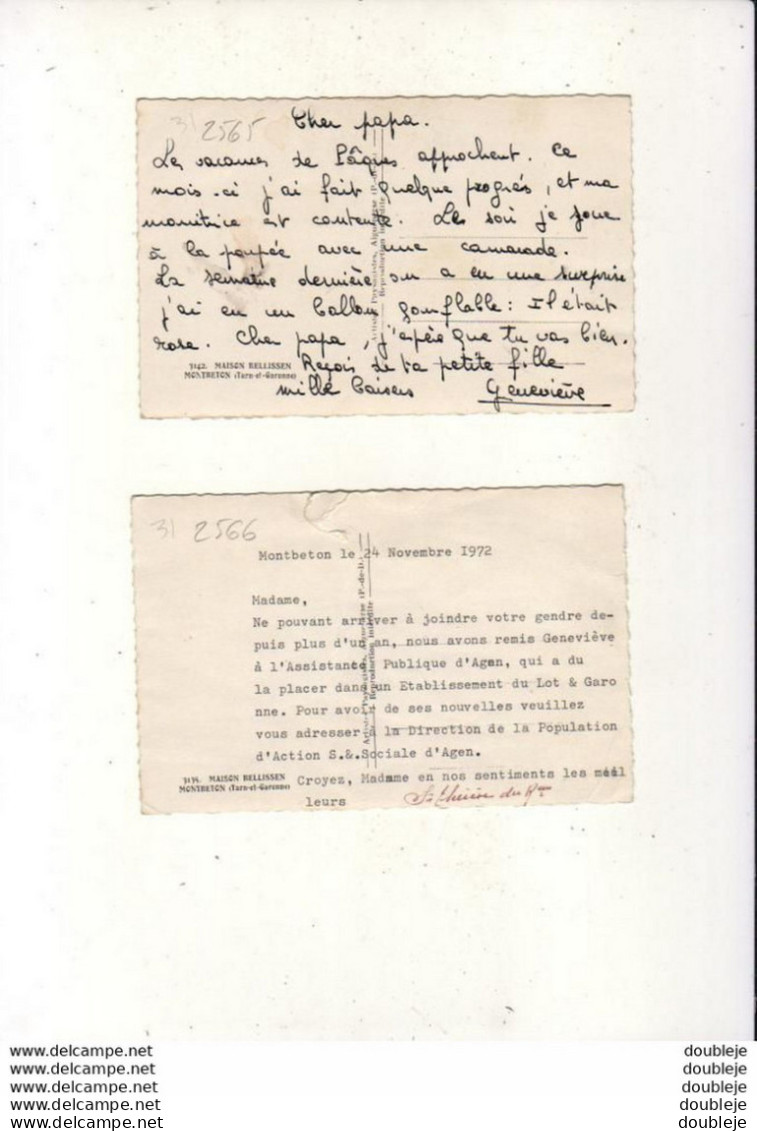 31 2565
Cher papa.
Les vacances de Pâques approchent. Ce
mois-ci j'ai fait quelque progrés, et ma
monitrice est contente. Les soir je joue
à la poupée avec une camarade.
La semaine dernière on a eu une surprise
j'ai eu un ballon gonflable: Il était
rose. Cher papa, j'espère que tu vas bien.
Reçois de ta petite fille
mille baisers Geneviève
3142. MAISON BELLISSEN
MONTBETON (Tarn-et-Garonne)
Reproduction interdite
31 2566
Montbeton le 24 Novembre 1972
Madame,
Ne pouvant arriver à joindre votre gendre de-
puis plus d'un an, nous avons remis Geneviève
à l'Assistance Publique d'Agen, qui a du
la placer dans un Etablissement du Lot & Garo
nne. Pour avoir de ses nouvelles veuillez
vous adresser à la Direction de la Population
d'Action S.&.Sociale d'Agen.
Croyez, Madame en nos sentiments les meil
leurs
MAISON BELLISSEN
MONTBETON (Tarn-et-Garonne)
Reproduction interdite
www.delcampe.net doubleje
www.delcampe.net doubleje
www.delcampe.net doubleje
www.delcampe.net doubleje
www.delcampe.net doubleje